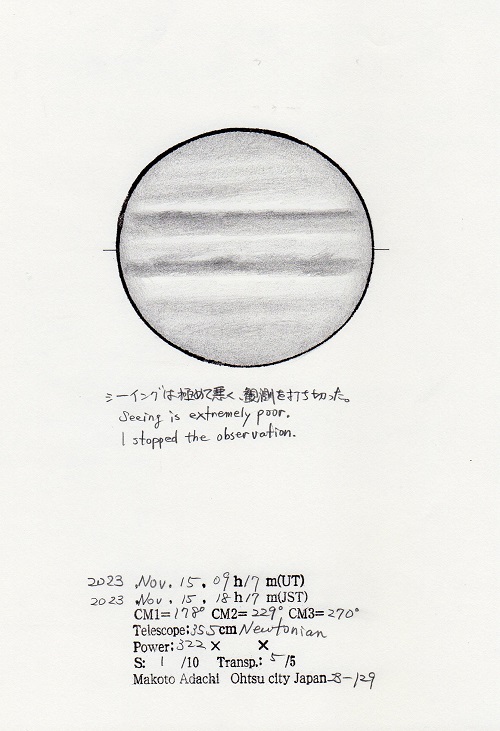 シーイングは極めて悪く、観測を打ち切った。
Seeing is extremely poor.
I stopped the observation.
2023 Nov. 15. 09h17m(UT)
2023 Nov. 15. 18h17m(JST)
CM1=178° CM2=229° CM3=270°
Telescope:355cm Newtonian
Power:322× ×
S: 1 /10 Transp.: 5/5
Makoto Adachi Ohtsu city Japan-B-129